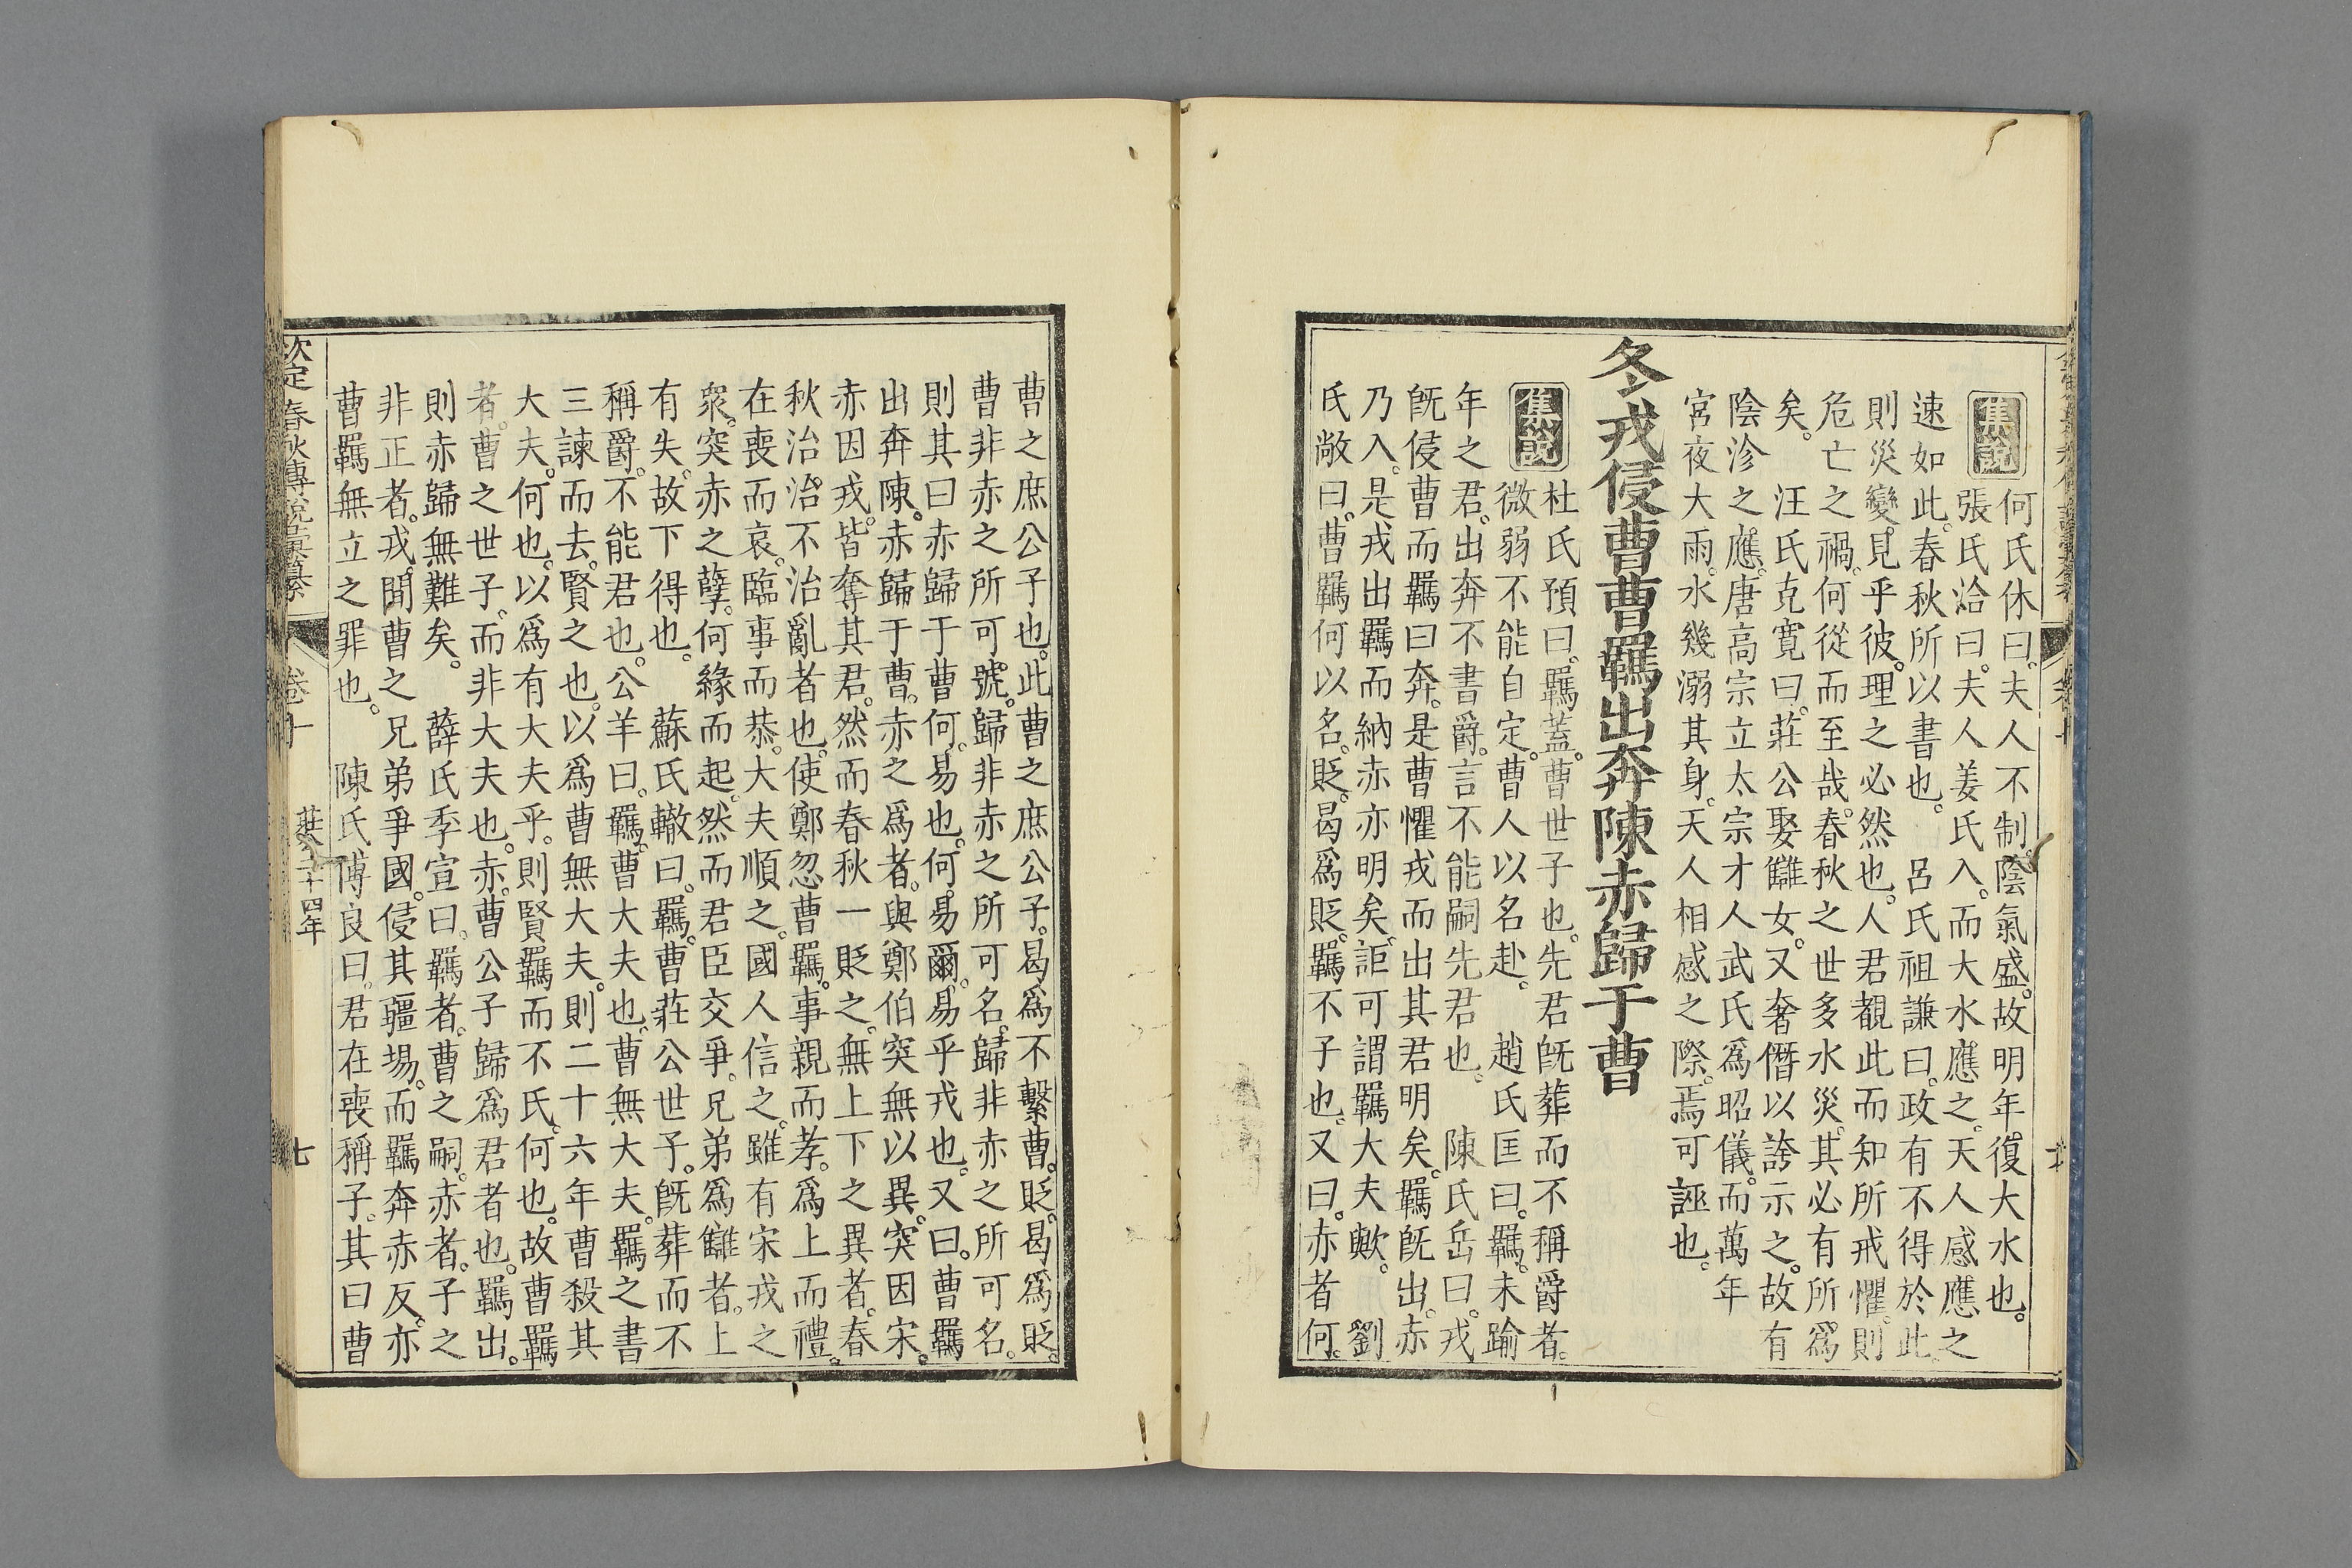 集說
何氏休曰。夫人不制。陰氣盛。故明年。復大水也。
張氏洽曰。夫人姜氏入。而大水應之。天人感應之
速如此。春秋所以書也。呂氏祖謙曰。政有不得於此。
則災變。見乎彼。理之必然也。人君覩此而知所戒懼。則
危亡之禍。何從而至哉。春秋之世多水災。其必有所爲
矣。汪氏克寬曰。莊公娶讎女。又奢僭以誇示之。故有
陰沴之應。唐高宗立太宗才人武氏爲昭儀。而萬年
宮夜大雨。水幾溺其身。天人相感之際。焉可誣也。
冬戎侵曹曹羈出奔陳赤歸于曹
集說
杜氏預曰。羈蓋。曹世子也。先君旣葬而不稱爵者。
微弱不能自定。曹人以名赴。趙氏匡曰。羈。未踰
年之君。出奔不書爵。言不能嗣先君也。陳氏岳曰。戎
旣侵曹而羈曰奔。是曹懼戎而出其君明矣。羈旣出。赤
乃入。是戎出羈而納赤亦明矣。詎可謂羈大夫歟。劉
氏敞曰。曹羈何以名。貶。曷爲貶。羈不子也。又曰。赤者何。
曹之庶公子也。此曹之庶公子。曷爲不繫曹。貶。曷爲貶。
曹非赤之所可號。歸非赤之所可名。歸非赤之所可名。
則其曰赤歸于曹何。易也。何。易爾。易乎戎也。又曰。曹羈
出奔陳。赤歸于曹。赤之爲者。與鄭伯突無以異。突因宋。
赤因戎。皆奪其君。然而春秋一貶之。無上下之異者。春
秋治治。不治亂者也。使鄭忽曹羈。事親而孝。爲上而禮。
在喪而哀。臨事而恭。大夫順之。國人信之。雖有宋戎之
衆。突赤之孽。何緣而起。然而君臣交爭。兄弟爲讎者。上
有失。故下得也。蘇氏轍曰。羈。曹莊公世子。旣葬而不
稱爵。不能君也。公羊曰。羈。曹大夫也。曹無大夫。羈之書
三諫而去。賢之也。以爲曹無大夫。則二十六年曹殺其
大夫。何也。以爲有大夫乎。則賢羈而不氏。何也。故曹羈
者。曹之世子。而非大夫也。赤。曹公子歸爲君者也。羈出。
則赤歸無難矣。薛氏季宣曰。羈者。曹之嗣。赤者。子之
非正者。戎。聞曹之兄弟爭國。侵其疆埸。而羈奔赤反。亦
曹羈無立之罪也。陳氏傅良曰。君在喪稱子。其曰曹
欽定春秋傳說彙纂
卷十
莊公二十四年
七